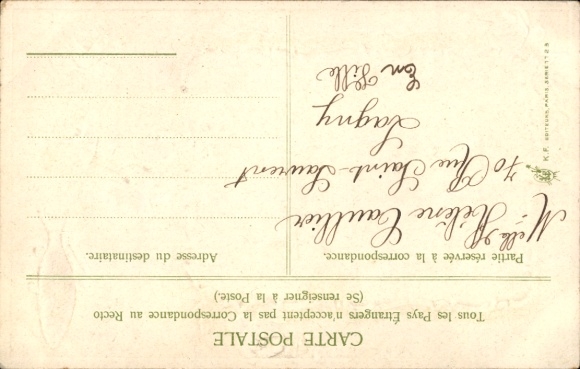 CARTE POSTALE
Tous les Pays Étrangers n'acceptent pas la Correspondance au Recto
(Se renseigner à la Poste.)
Partie réservée à la correspondance.
Adresse du destinataire.
Melle Hélène Caullier
70 Rue Saint-Laurent
Lagny
En Ville
K.F. EDITEURS, PARIS, SERIE 1723